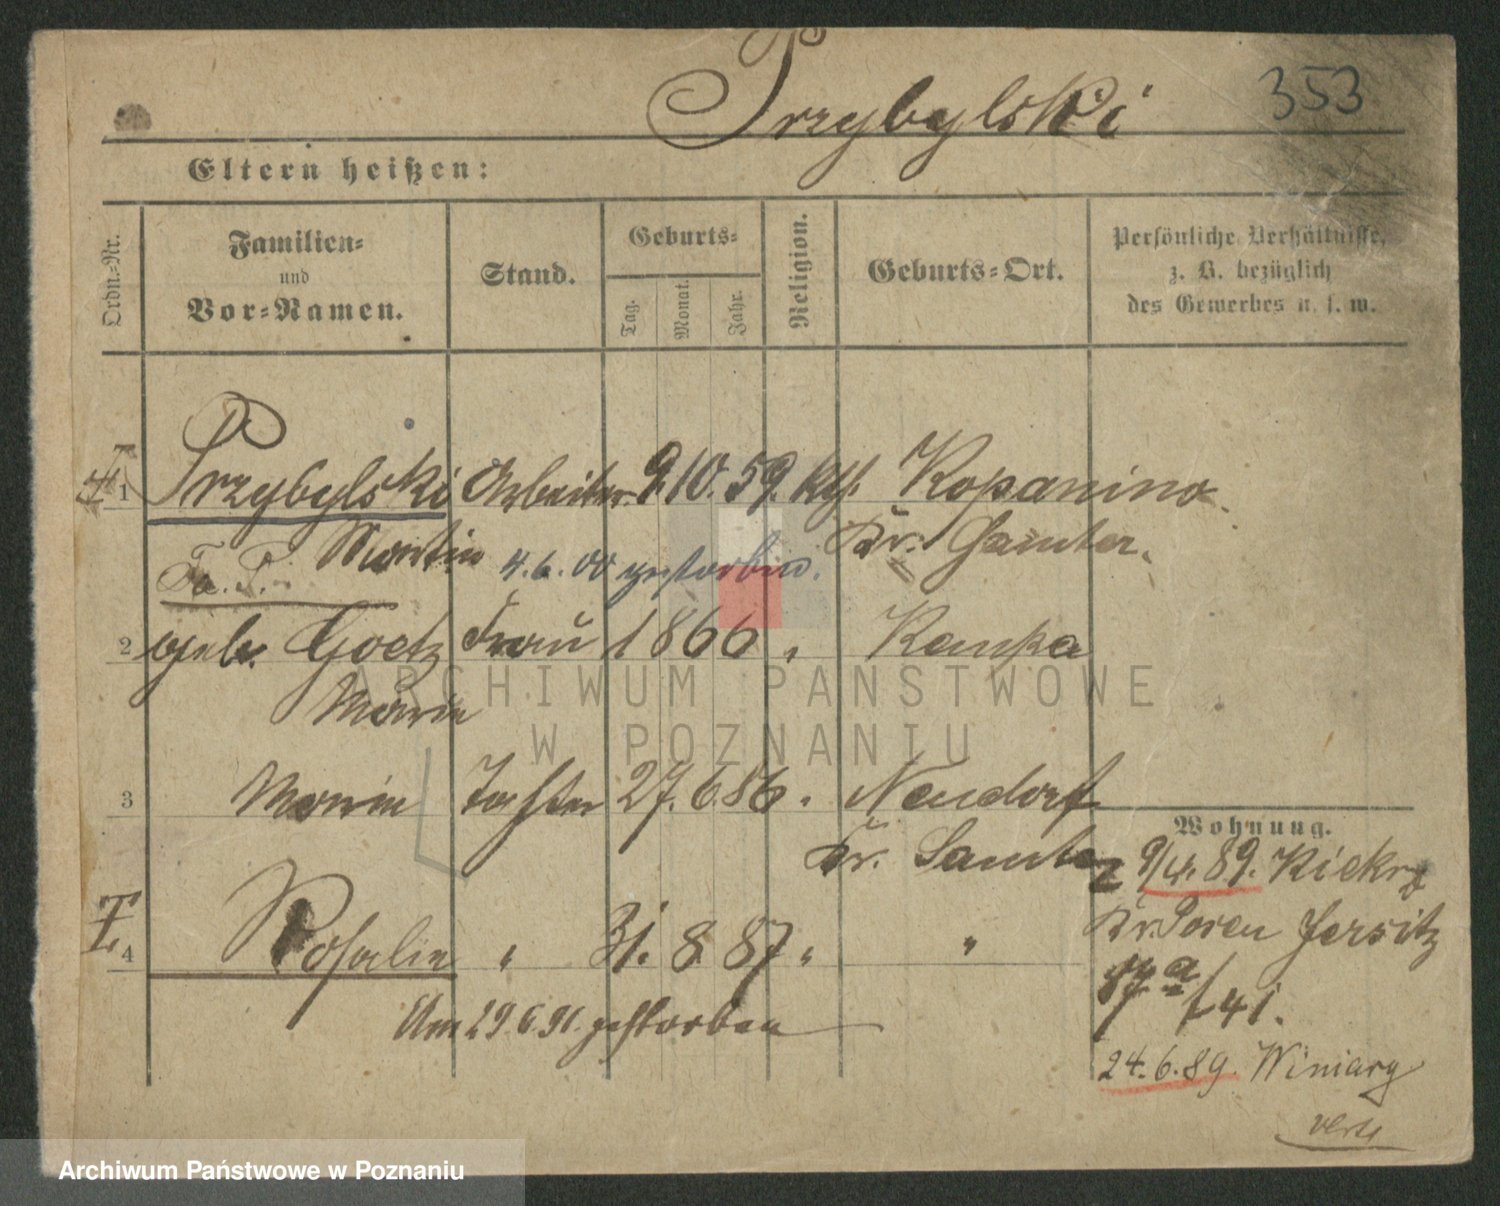 Przybylski 353
Eltern heißen:
Ordn.-Nr.
Familien-
und
Vor-Namen.
Stand.
Geburts-
Tag. Monat. Jahr.
Religion.
Geburts-Ort.
Persönliche Verhältnisse,
z. B. bezüglich
des Gewerbes u. s. w.
1 Przybylski Arbeiter 9. 10. 59. kth. Kopanino
Martin Kr. Samter.
4. 6. 00 gestorben.
2 geb. Goetz Frau 1866 "
Marie
3 Marie Tochter 27. 6. 86. " Neudorf
Kr. Samter
4 Rosalie " 31. 8. 87 " "
Am 29. 6. 91. gestorben
Wohnung.
9/4. 89. Kiekrz
Kr. Posen Jersitz
41.
24. 6. 89. Winiary
ARCHIWUM PAŃSTWOWE
W POZNANIU
Archiwum Państwowe w Poznaniu